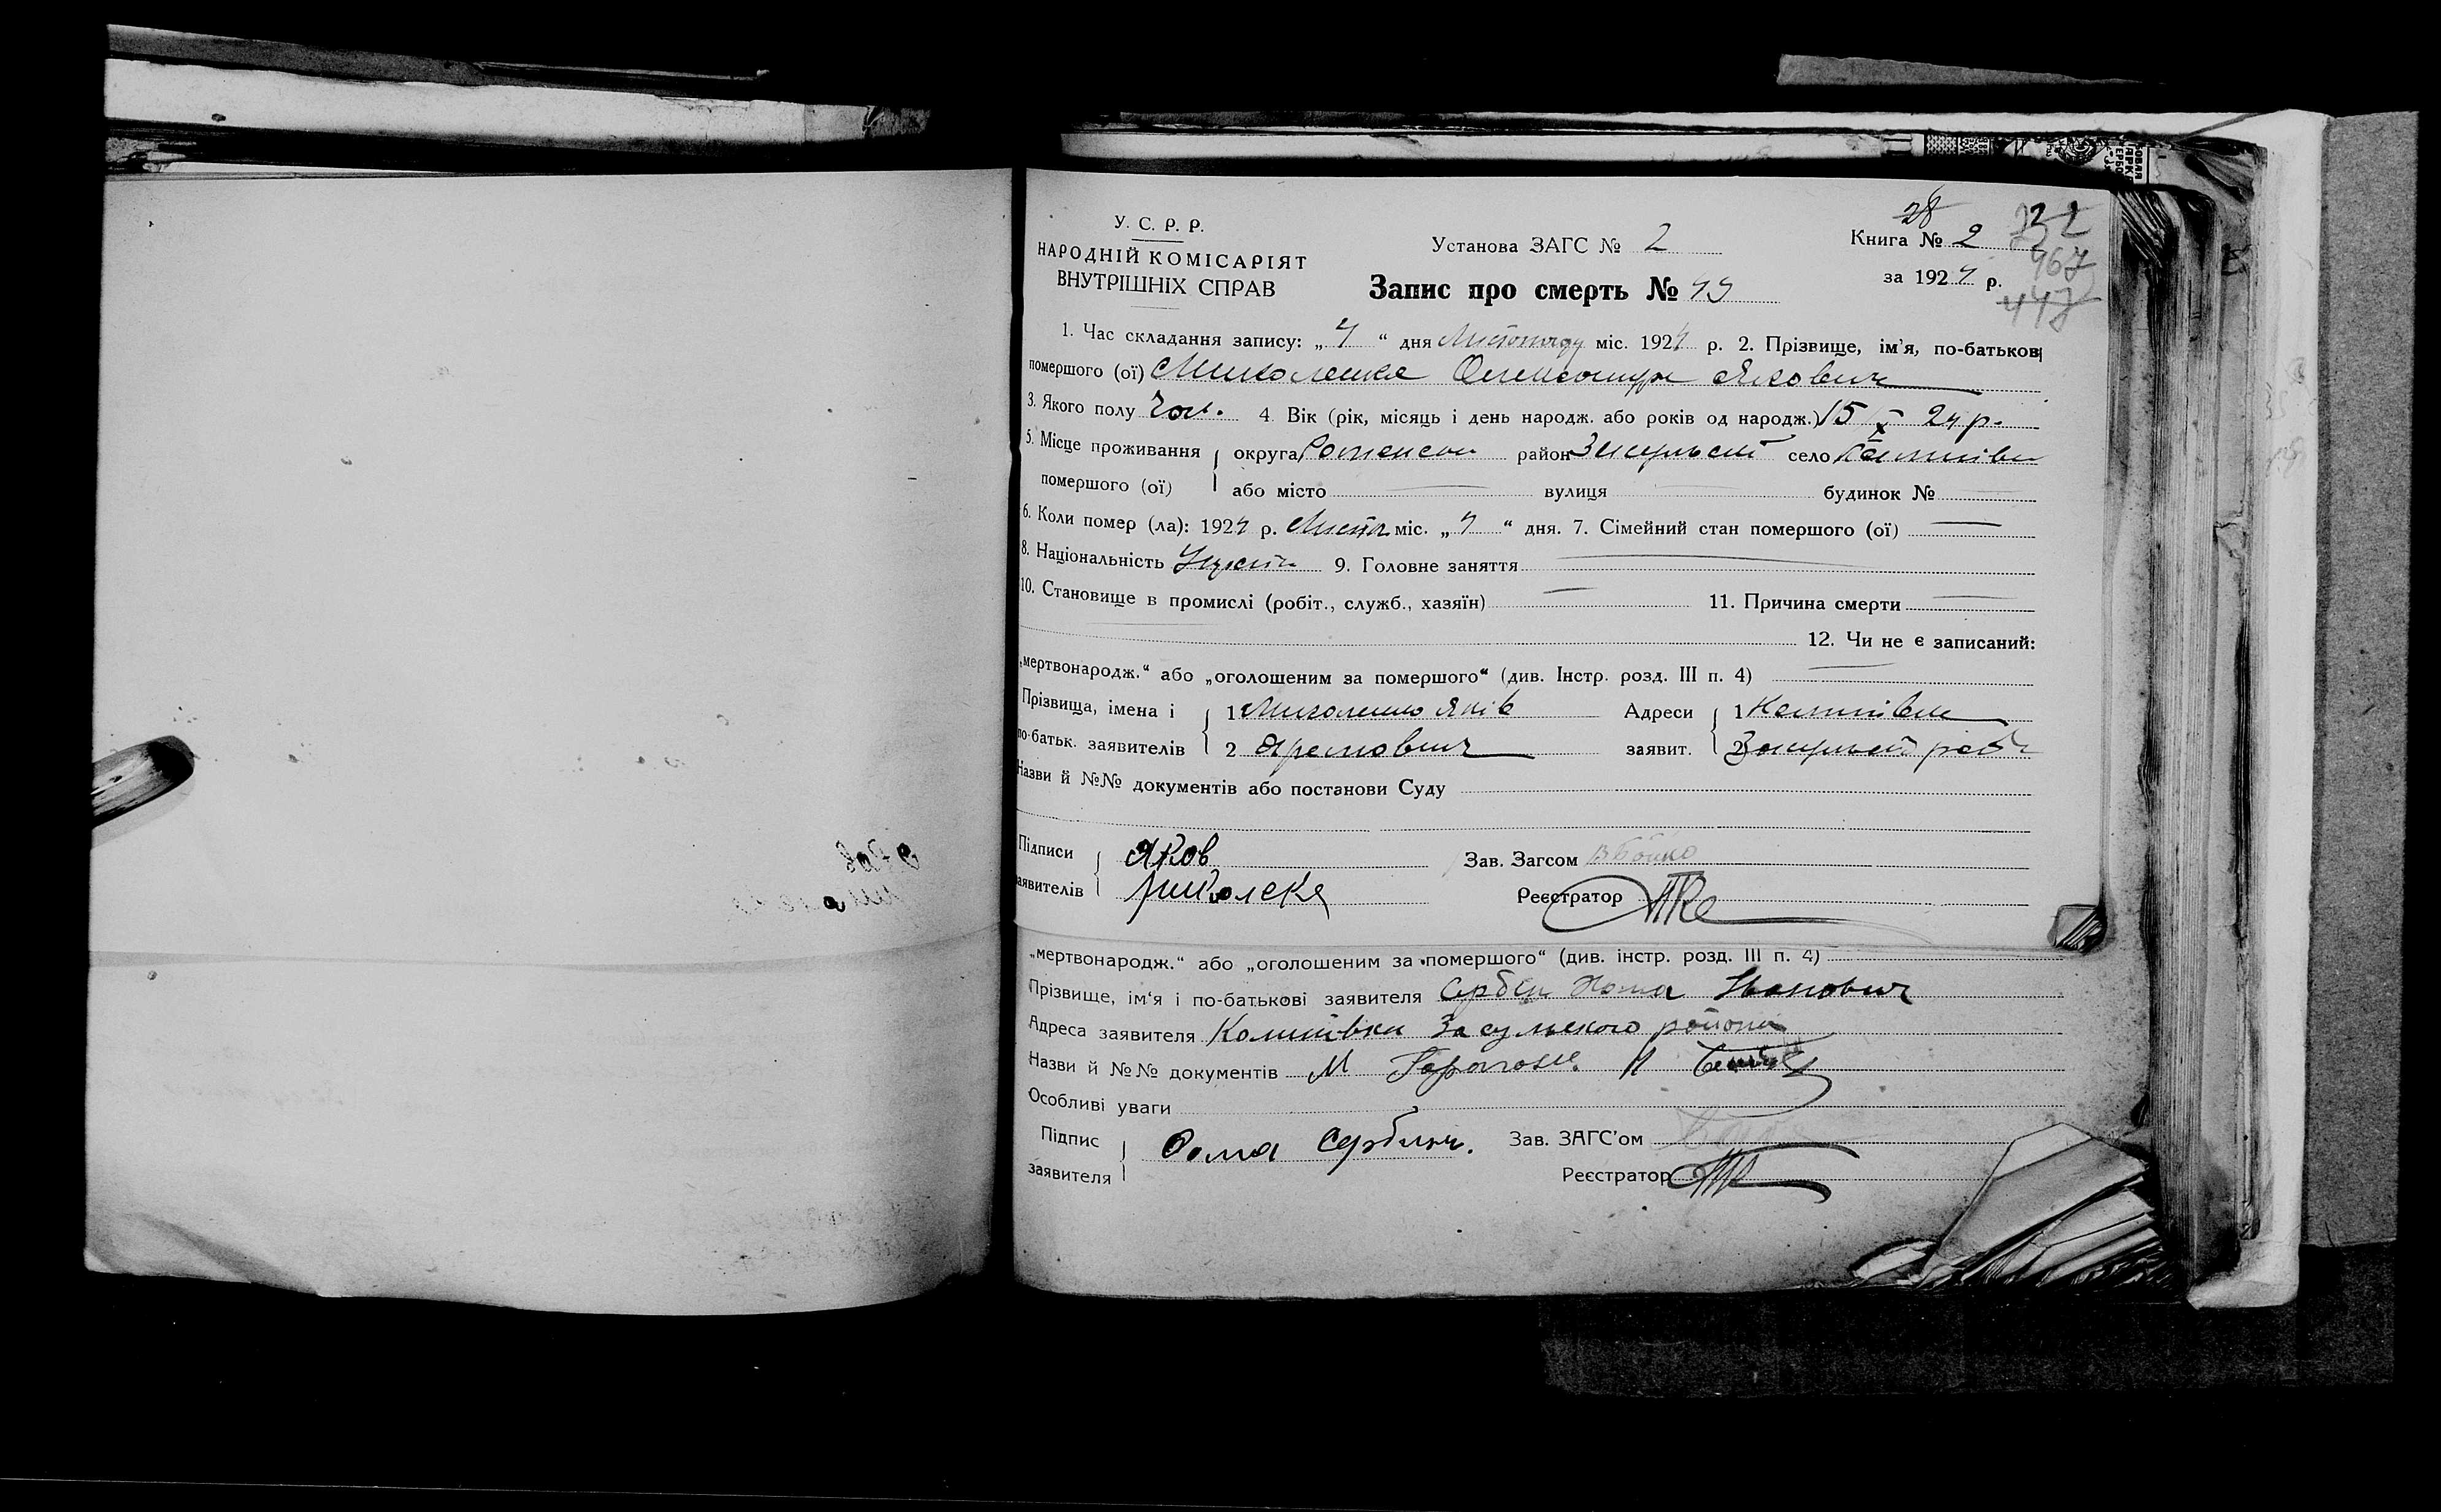 28
У. С. Р. Р.
НАРОДНІЙ КОМІСАРІЯТ
ВНУТРІШНІХ СПРАВ
Установа ЗАГС № 2
Книга № 2
за 1924 р.
467
447
Запис про смерть № 49
1. Час складання запису: „4“ дня Листопаду міс. 1924 р. 2. Прізвище, ім'я, по-батькові
помершого (ої) Олександр Якович
3. Якого полу Чол. 4. Вік (рік, місяць і день народж. або років од народж.) 15 X 24 р.
5. Місце проживання округа Роменськ район Засульськ село
помершого (ої) або місто вулиця будинок №
6. Коли помер (ла): 1924 р. Листоп міс. „4“ дня. 7. Сімейний стан помершого (ої)
8. Національність 9. Головне заняття
10. Становище в промислі (робіт., служб., хазяїн) 11. Причина смерти
12. Чи не є записаний:
„мертвонародж.“ або „оголошеним за помершого“ (див. Інстр. розд. III п. 4)
Прізвища, імена і 1 Яків Адреси 1
по-батьк. заявителів 2 Яремович заявит. 2 Засульськ
Назви й №№ документів або постанови Суду
Підписи Яков Зав. Загсом ВБойко
заявителів Миколека Реєстратор
„мертвонародж.“ або „оголошеним за помершого“ (див. інстр. розд. III п. 4)
Прізвище, ім'я і по-батькові заявителя Сербин Хома Іванович
Адреса заявителя Засульского района
Назви й №№ документів
Особливі уваги
Підпис Фома Сербин. Зав. ЗАГС'ом
заявителя Реєстратор